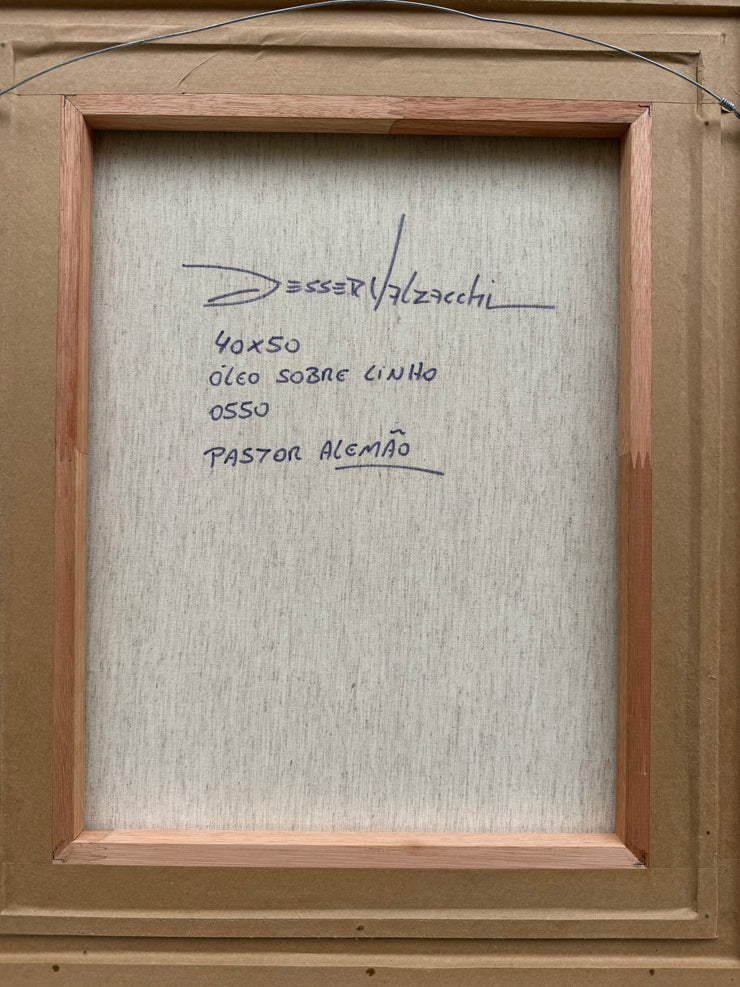 Desser Valzacchi
40x50
ÓLEO SOBRE LINHO
0550
PASTOR ALEMÃO